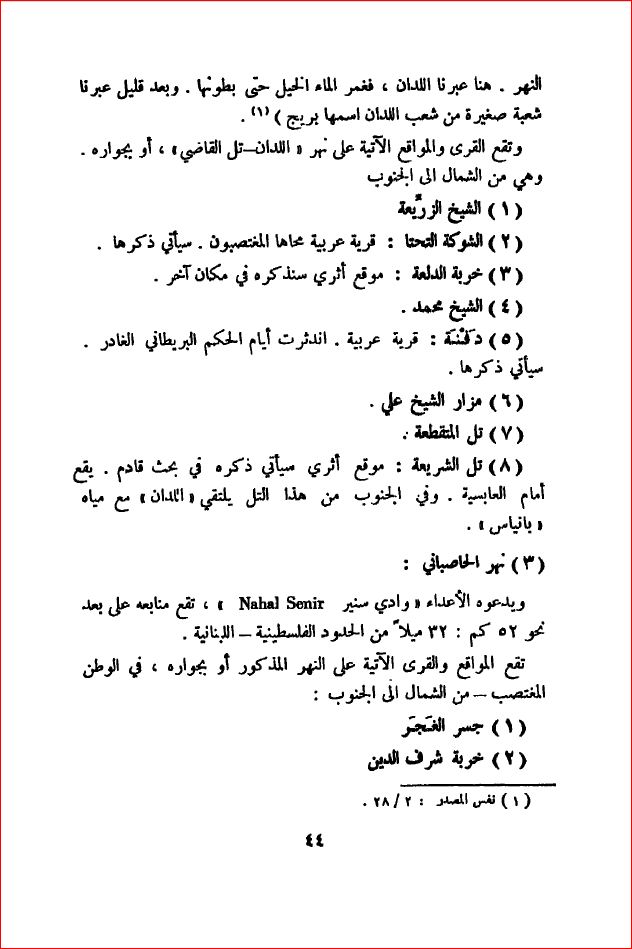 النهر . هنا عبرنا اللدان ، فغمر الماء الخيل حتى بطونها . وبعد قليل عبرنا
شعبة صغيرة من شعب اللدان اسمها بريج ) (١) .
وتقع القرى والمواقع الآتية على نهر « اللدان–تل القاضي» ، أو بجواره .
وهي من الشمال الى الجنوب
( ١ ) الشيخ الزريّعة
( ٢ ) الشوكة التحتا : قرية عربية محاها المغتصبون . سيأتي ذكرها .
( ٣ ) خربة الدلعة : موقع أثري سنذكره في مكان آخر .
( ٤ ) الشيخ محمد .
( ٥ ) دَفْنَة : قرية عربية . اندثرت أيام الحكم البريطاني الغادر .
سيأتي ذكرها .
( ٦ ) مزار الشيخ علي .
( ٧ ) تل المتقطعة .
( ٨ ) تل الشريعة : موقع أثري سيأتي ذكره في بحث قادم . يقع
أمام العابسية . وفي الجنوب من هذا التل يلتقي « اللدان » مع مياه
« بانياس » .
( ٣ ) نهر الحاصباني :
ويدعوه الأعداء « وادي سنير Nahal Senir » ، تقع منابعه على بعد
نحو ٥٢ كم : ٣٢ ميلاً من الحدود الفلسطينية – اللبنانية .
تقع المواقع والقرى الآتية على النهر المذكور أو بجواره ، في الوطن
المغتصب – من الشمال الى الجنوب :
( ١ ) جسر الغَجَر
( ٢ ) خربة شرف الدين
( ١ ) نفس المصدر : ٢ / ٢٨ .
٤٤